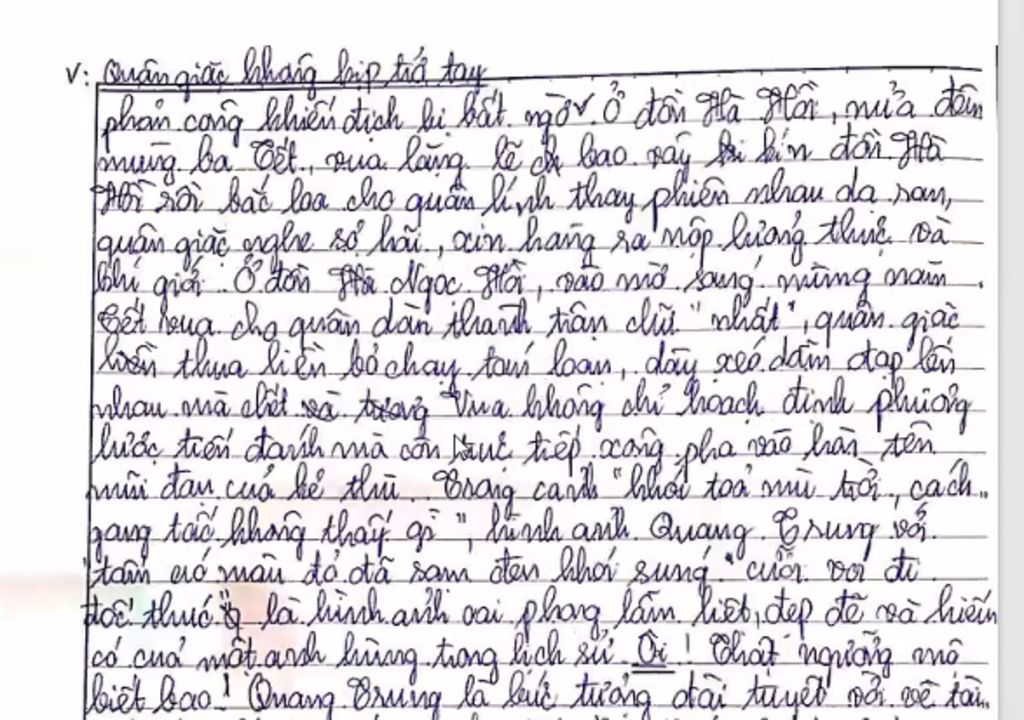 V: Quân giặc không kịp trở tay
phản công khiến địch bị bất ngờ v. Ở đồn Hà Hồi, nửa đêm
mùng ba Tết, vua lặng lẽ cho bao vây kín đồn Hà
Hồi rồi bắc loa cho quân lính thay phiên nhau dạ ran,
quân giặc nghe sợ hãi, xin hàng ra nộp lương thực và
khí giới. Ở đồn Hà Ngọc Hồi, vào mờ sáng mùng năm
Tết vua cho quân dàn thành trận chữ "nhất", quân giặc
thua liền bỏ chạy tán loạn, dày xéo dẫm đạp lên
nhau mà chết. Vua không chỉ hoạch định phương
lược tiến đánh mà còn trực tiếp xông pha vào hòn tên
mũi đạn của kẻ thù. Trong cảnh "khói toả mù trời, cách
gang tấc không thấy gì", hình ảnh Quang Trung với
"tấm áo màu đỏ đã sạm đen khói súng" cưỡi voi đi
đốc thúc là hình ảnh oai phong lẫm liệt, đẹp đẽ và hiếm
có của một anh hùng trong lịch sử. Ôi! Thật ngưỡng mộ
biết bao! Quang Trung là bức tượng đài tuyệt vời về tài